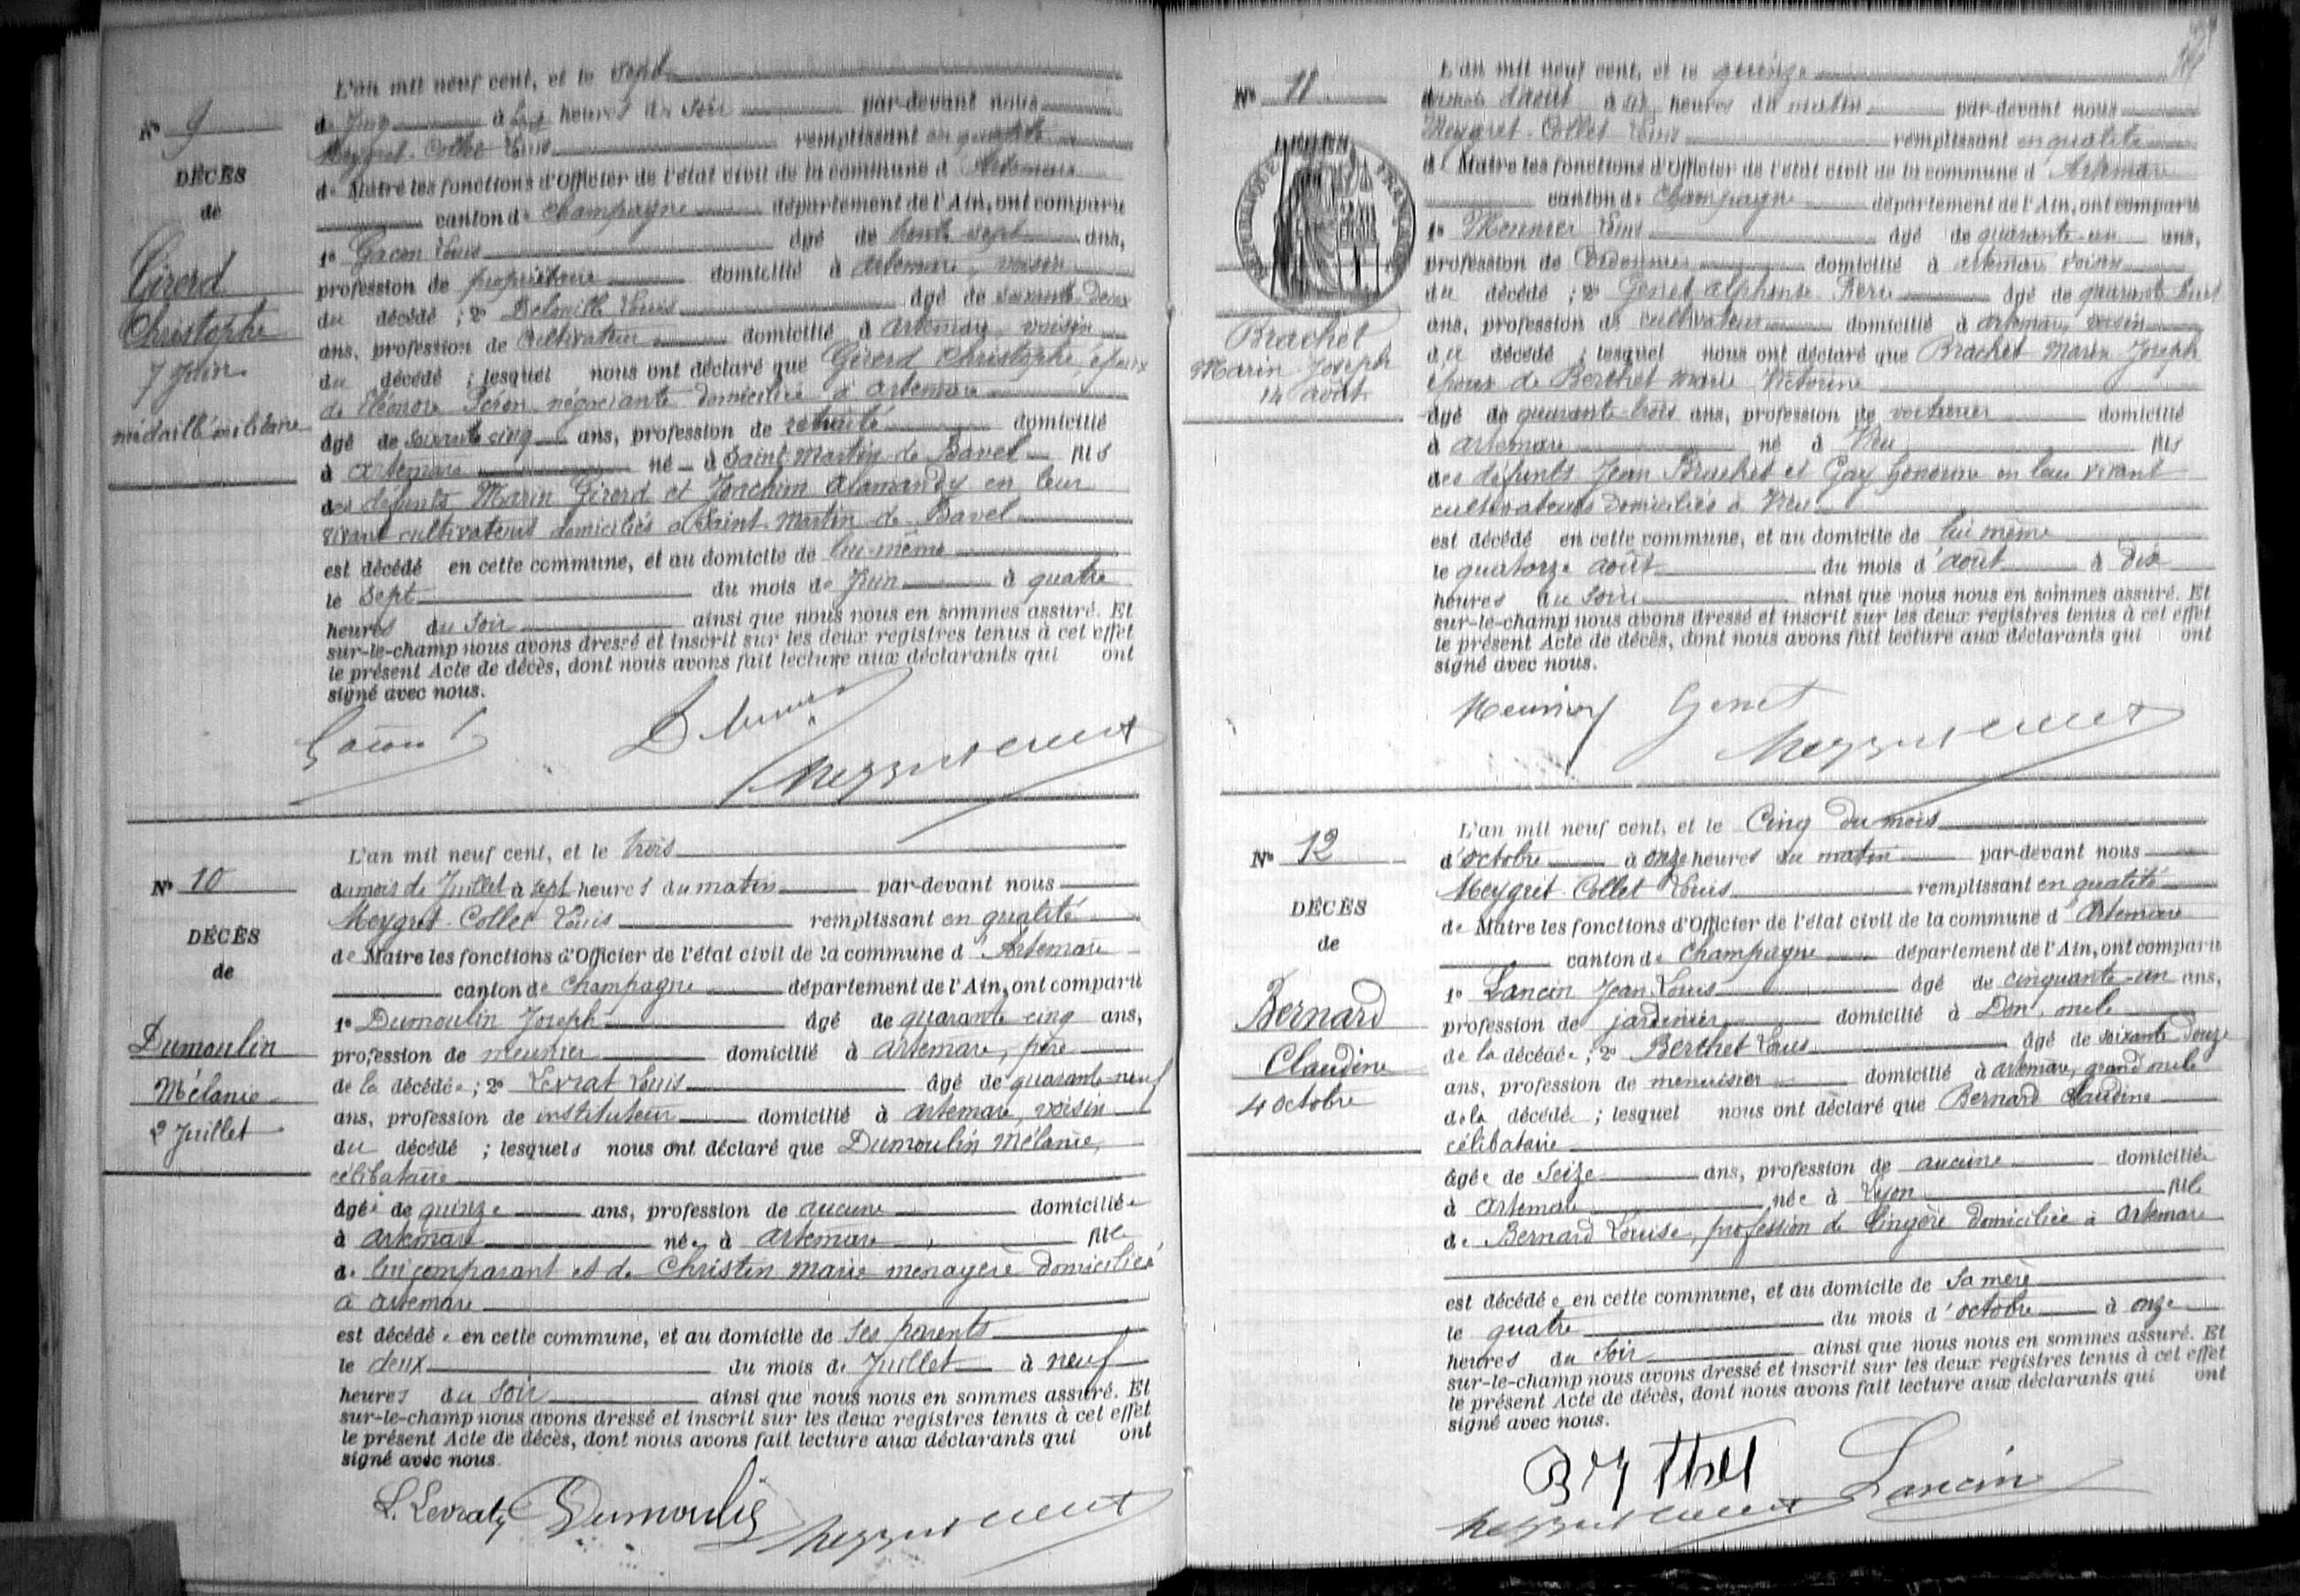 Nº 9
DÉCÈS
de
Girerd
Christophe
7 Juin
médaillé militaire
L'an mil neuf cent, et le sept
de Juin à heures du soir par-devant nous
Meygret-Collet Louis remplissant en qualité
de Maire les fonctions d'Officier de l'état civil de la commune d'Artemare
canton de Champagne département de l'Ain, ont comparu
1º Gacon Louis âgé de trente sept ans,
profession de propriétaire domicilié à Artemare, voisin
du décédé ; 2º Louis âgé de soixante deux
ans, profession de cultivateur domicilié à Artemare, voisin
du décédé ; lesquel nous ont déclaré que Girerd Christophe, époux
de Eléonore Peron négociante domiciliée à Artemare
âgé de soixante cinq ans, profession de retraité domicilié
à Artemare né à Saint-Martin-de-Bavel fils
des défunts Marin Girerd et Joachim Alamandy en leur
vivant cultivateurs domiciliés à Saint-Martin-de-Bavel
est décédé en cette commune, et au domicile de lui-même
le sept du mois de Juin à quatre
heures du soir ainsi que nous nous en sommes assuré. Et
sur-le-champ nous avons dressé et inscrit sur les deux registres tenus à cet effet
le présent Acte de décès, dont nous avons fait lecture aux déclarants qui ont
signé avec nous.
Nº 10
DÉCÈS
de
Dumoulin
Mélanie
2 Juillet
L'an mil neuf cent, et le trois
du mois de Juillet à sept heures du matin par-devant nous
Meygret-Collet Louis remplissant en qualité
de Maire les fonctions d'Officier de l'état civil de la commune d'Artemare
canton de Champagne département de l'Ain, ont comparu
1º Dumoulin Joseph âgé de quarante cinq ans,
profession de meunier domicilié à Artemare, père
de la décédée ; 2º Levrat Louis âgé de quarante-neuf
ans, profession de instituteur domicilié à Artemare, voisin
du décédé ; lesquels nous ont déclaré que Dumoulin Mélanie,
célibataire
âgée de quinze ans, profession de aucune domiciliée
à Artemare née à Artemare fille
de lui comparant et de Christin Marie ménagère domiciliés
à Artemare
est décédée en cette commune, et au domicile de ses parents
le deux du mois de Juillet à neuf
heures du soir ainsi que nous nous en sommes assuré. Et
sur-le-champ nous avons dressé et inscrit sur les deux registres tenus à cet effet
le présent Acte de décès, dont nous avons fait lecture aux déclarants qui ont
signé avec nous.
L. Levrat Dumoulin
Nº 11
RÉPUBLIQUE FRANÇAISE
Brachet
Marin Joseph
14 août
L'an mil neuf cent, et le quinze
du mois d'août à six heures du matin par-devant nous
Meygret-Collet Louis remplissant en qualité
de Maire les fonctions d'Officier de l'état civil de la commune d'Artemare
canton de Champagne département de l'Ain, ont comparu
1º Meunier Louis âgé de quarante-un ans,
profession de Cordonnier domicilié à Artemare voisin
du décédé ; 2º Genet Alphonse âgé de quarante huit
ans, profession de cultivateur domicilié à Artemare, voisin
du décédé ; lesquel nous ont déclaré que Brachet Marin Joseph
époux de Berthet Marie Victorine
âgé de quarante-trois ans, profession de voiturier domicilié
à Artemare né à Vieu fils
des défunts Jean Brachet et Gay en leur vivant
cultivateurs domiciliés à Vieu
est décédé en cette commune, et au domicile de lui même
le quatorze août du mois d'août à dix
heures du soir ainsi que nous nous en sommes assuré. Et
sur-le-champ nous avons dressé et inscrit sur les deux registres tenus à cet effet
le présent Acte de décès, dont nous avons fait lecture aux déclarants qui ont
signé avec nous.
Meunier Genet
Nº 12
DÉCÈS
de
Bernard
Claudine
4 octobre
L'an mil neuf cent, et le Cinq du mois
d'octobre à onze heures du matin par-devant nous
Meygret-Collet Louis remplissant en qualité
de Maire les fonctions d'Officier de l'état civil de la commune d'Artemare
canton de Champagne département de l'Ain, ont comparu
1º Lancin Jean Louis âgé de cinquante-un ans,
profession de jardinier domicilié à Don, oncle
de la décédée ; 2º Berthet Louis âgé de soixante douze
ans, profession de menuisier domicilié à Artemare, grand oncle
de la décédée ; lesquel nous ont déclaré que Bernard Claudine
célibataire
âgée de Seize ans, profession de aucune domiciliée
à Artemare née à Lyon fille
de Bernard Louise, profession de lingère domiciliée à Artemare
est décédée en cette commune, et au domicile de sa mère
le quatre du mois d'octobre à onze
heures du soir ainsi que nous nous en sommes assuré. Et
sur-le-champ nous avons dressé et inscrit sur les deux registres tenus à cet effet
le présent Acte de décès, dont nous avons fait lecture aux déclarants qui ont
signé avec nous.
Lancin